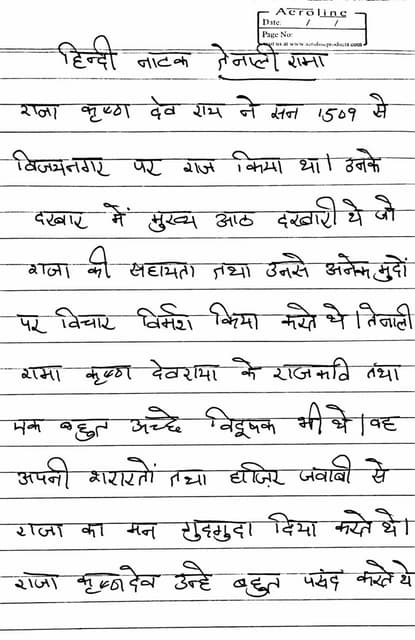 Acroline
Date: / /
Page No:
हिन्दी नाटक तेनाली रामा
राजा कृष्ण देव राय ने सन 1509 से
विजयनगर पर राज किया था। उनके
दरबार में मुख्य आठ दरबारी थे जो
राजा की सहायता तथा उनसे अनेक मुदों
पर विचार विर्मश किया करते थे। तेनाली
रामा कृष्ण देवराया के राजकवि तथा
एक बहुत अच्छे विदूषक भी थे। वह
अपनी शरारतों तथा हाज़िर जवाबी से
राजा का मन गुदगुदा दिया करते थे।
राजा कृष्णदेव उन्हे बहुत पसंद करते थे